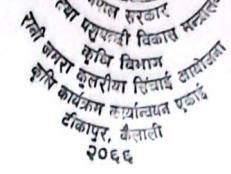 नेपाल सरकार
तथा पशुपन्छी विकास मन्त्रालय
कृषि विभाग
रानी जमरा कुलरीया सिंचाई आयोजना
कृषि कार्यक्रम कार्यान्वयन एकाई
टीकापुर, कैलाली
२०६६